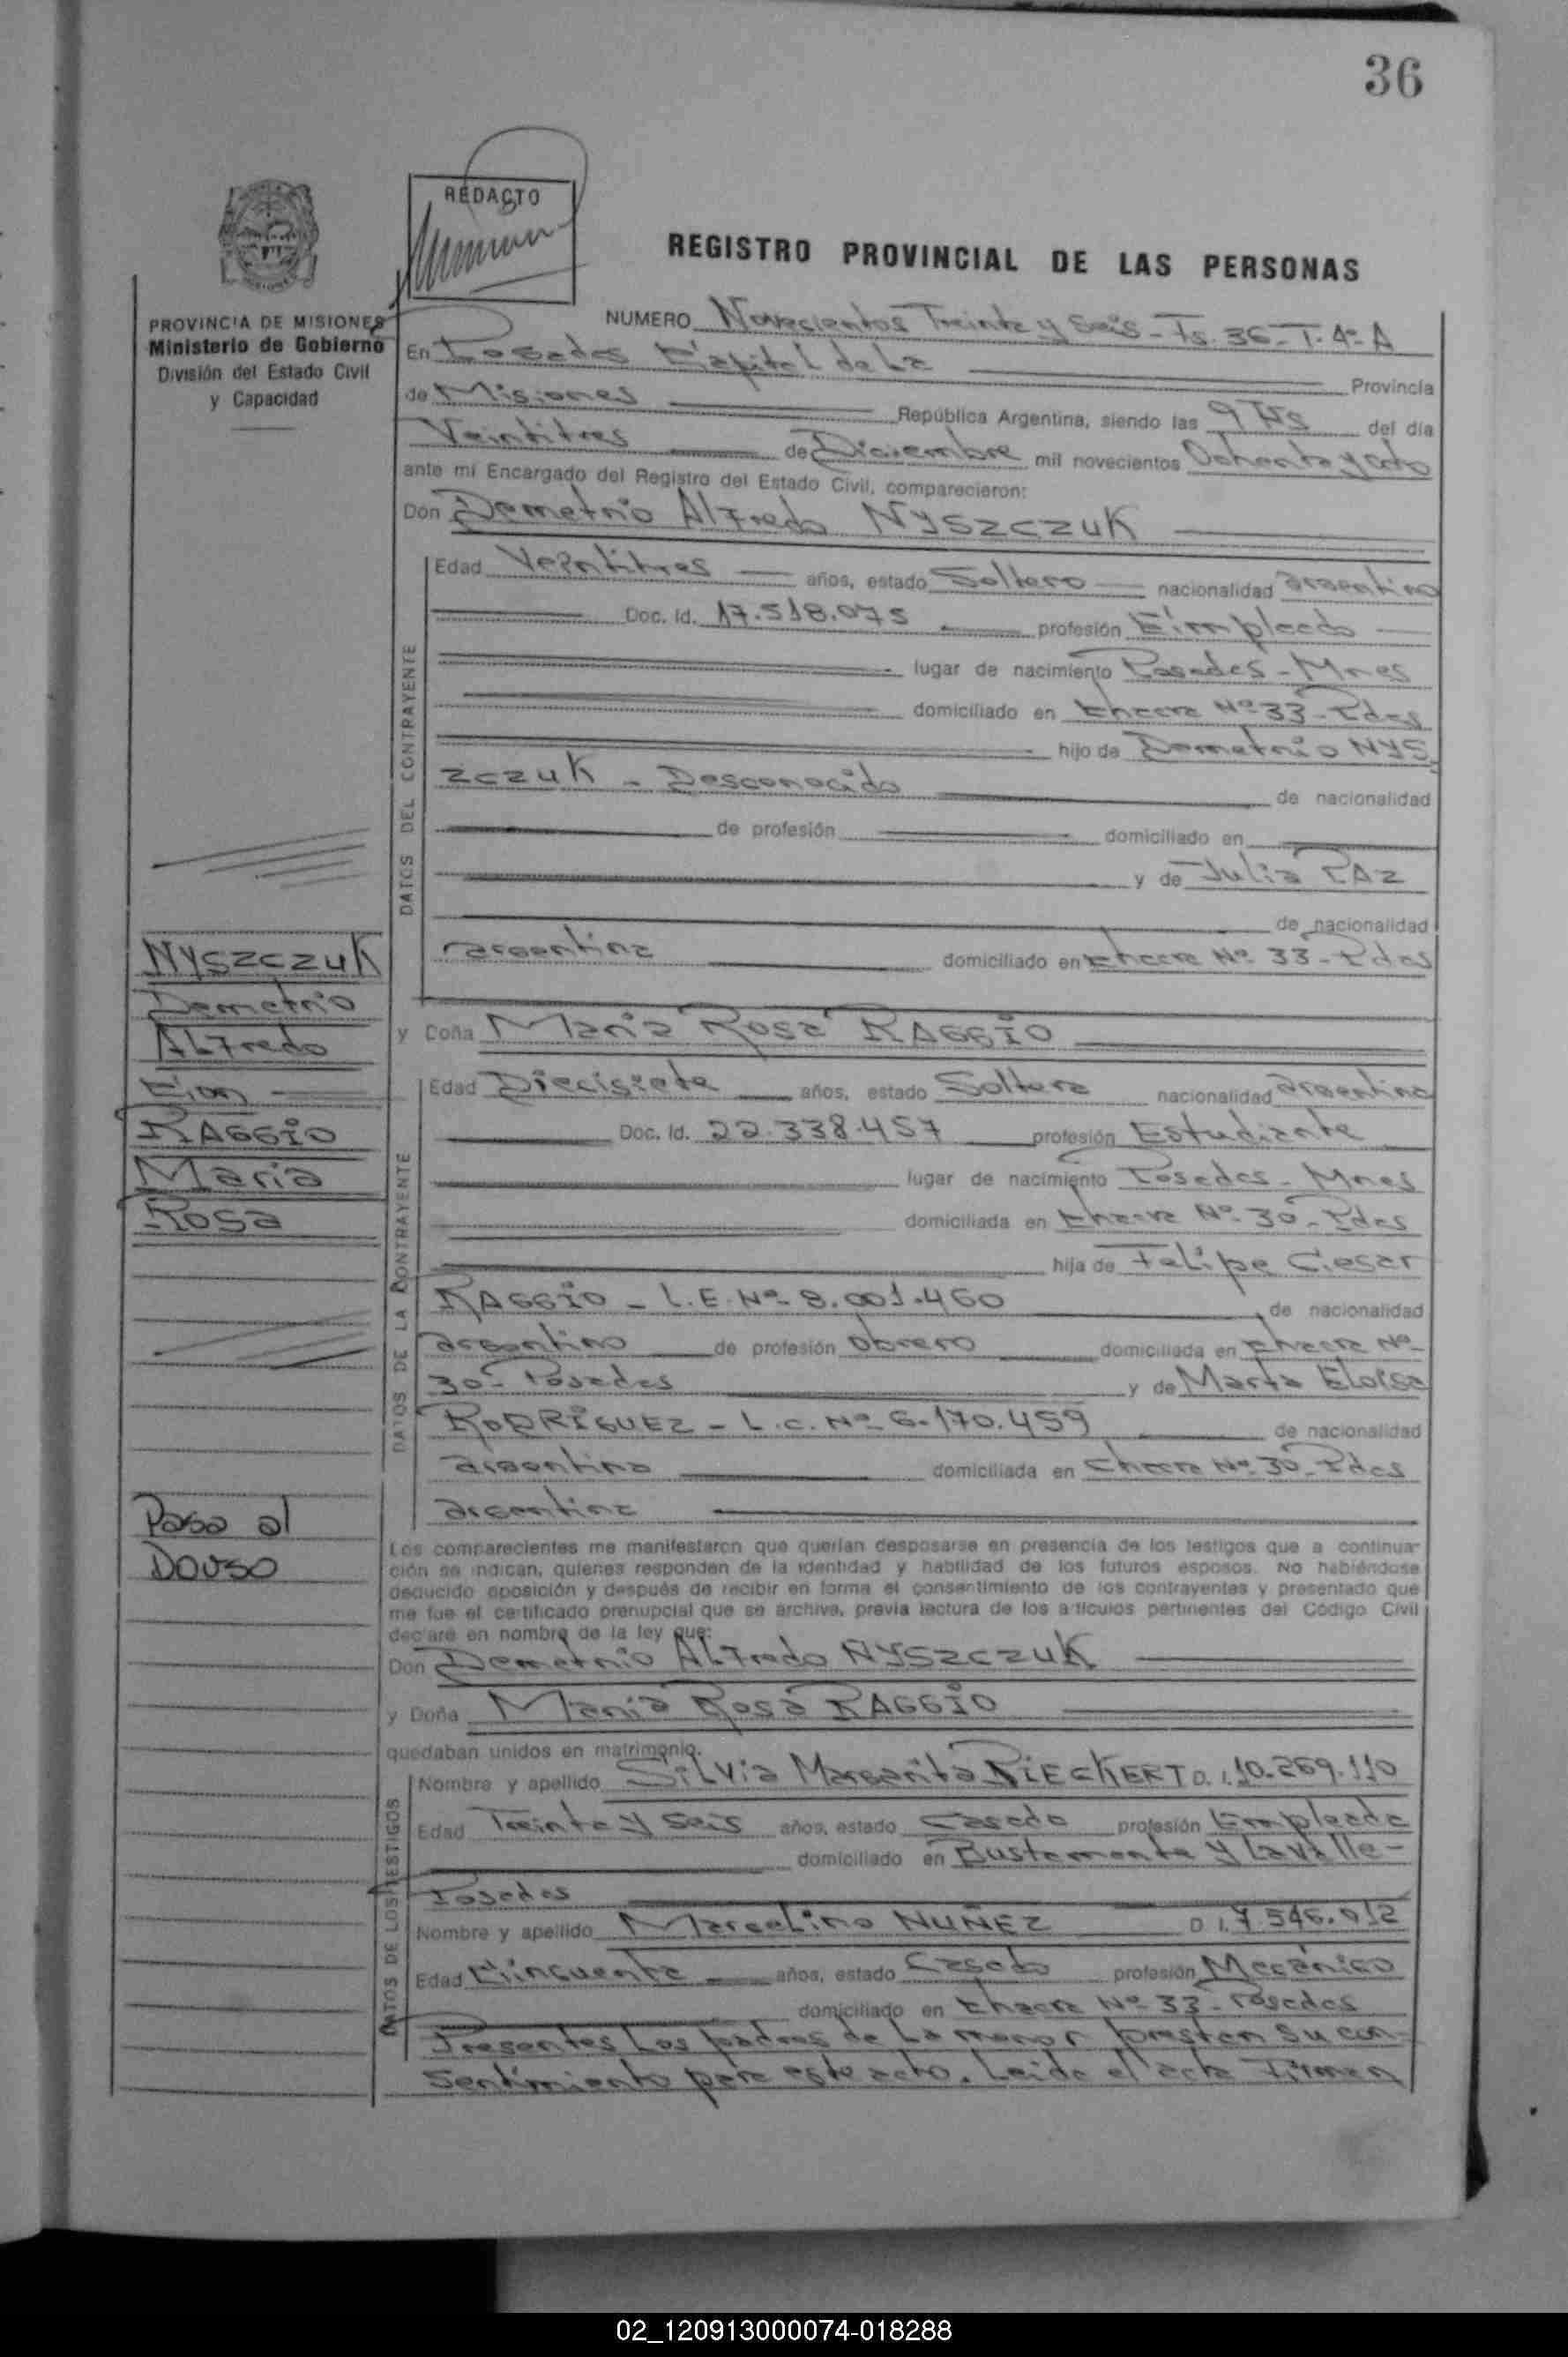 36
REDACTO
REGISTRO PROVINCIAL DE LAS PERSONAS
PROVINCIA DE MISIONES
Ministerio de Gobierno
División del Estado Civil
y Capacidad
NUMERO Novecientos Treinta y Seis - Fs. 36 - T. 4º A
En Posadas Capital de La Provincia
de Misiones República Argentina, siendo las 9 Hs del día
Veintitres de Diciembre mil novecientos Ochenta y ocho
ante mi Encargado del Registro del Estado Civil, comparecieron:
Don Demetrio Alfredo NYSZCZUK
DATOS DEL CONTRAYENTE
Edad Veintitres años, estado Soltero nacionalidad argentino
Doc. Id. 17.518.075 profesión Empleado
lugar de nacimiento Posadas - Mnes
domiciliado en Chacra Nº 33 - Pdas
hijo de Demetrio NYS
ZCZUK - Desconocido de nacionalidad
de profesión domiciliado en
y de Julia PAZ
de nacionalidad
argentina domiciliado en Chacra Nº 33 - Pdas
NYSZCZUK
Demetrio
Alfredo
Con
RAGGIO
Maria
Rosa
y Doña Maria Rosa RAGGIO
DATOS DE LA CONTRAYENTE
Edad Diecisiete años, estado Soltera nacionalidad argentina
Doc. Id. 22.338.457 profesión Estudiante
lugar de nacimiento Posadas - Mnes
domiciliada en Chacra Nº 30 - Pdas
hija de Felipe Cesar
RAGGIO - L.E. Nº 8.001.460 de nacionalidad
argentino de profesión obrero domiciliada en Chacra Nº
30 - Posadas y de Marta Eloisa
RODRIGUEZ - L.C. Nº 6.170.459 de nacionalidad
argentina domiciliada en Chacra Nº 30 - Pdas
argentina
Pasa al
Dorso
Los comparecientes me manifestaron que querían desposarse en presencia de los testigos que a continua-
ción se indican, quienes responden de la identidad y habilidad de los futuros esposos. No habiéndose
deducido oposición y después de recibir en forma el consentimiento de los contrayentes y presentado que
me fue el certificado prenupcial que se archiva, previa lectura de los artículos pertinentes del Código Civil
declaré en nombre de la ley que:
Don Demetrio Alfredo NYSZCZUK
y Doña Maria Rosa RAGGIO
quedaban unidos en matrimonio.
DATOS DE LOS TESTIGOS
Nombre y apellido Silvia Margarita RIECKERT D. I. 10.269.110
Edad Treinta y Seis años, estado Casado profesión Empleada
domiciliado en Bustamante y Lavalle -
Posadas
Nombre y apellido Marcelino NUÑEZ D. I. 7.546.012
Edad Cincuenta años, estado Casado profesión Mecánico
domiciliado en Chacra Nº 33 - Posadas
Presentes Los padres de La menor prestan su con-
sentimiento para este acto. Leida el acta Firman
02_120913000074-018288